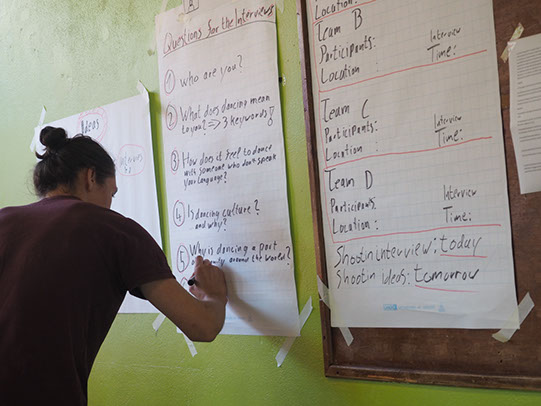 Ideas
A
Questions for the Interviews
1 who are you?
2 What does dancing mean
to you? => 3 keywords!
3 How does it feel to dance
with someone who don't speak
your language?
4 Is dancing culture?
and why?
5 Why is dancing a part
around the world?
Location:
Team B
Participants:
Location
Interview
Time:
Team C
Participants:
Location
Interview
Time:
Team D
Participants
Location:
Interview
Time:
Shootin interview: today
Shootin ideas: tomorrow